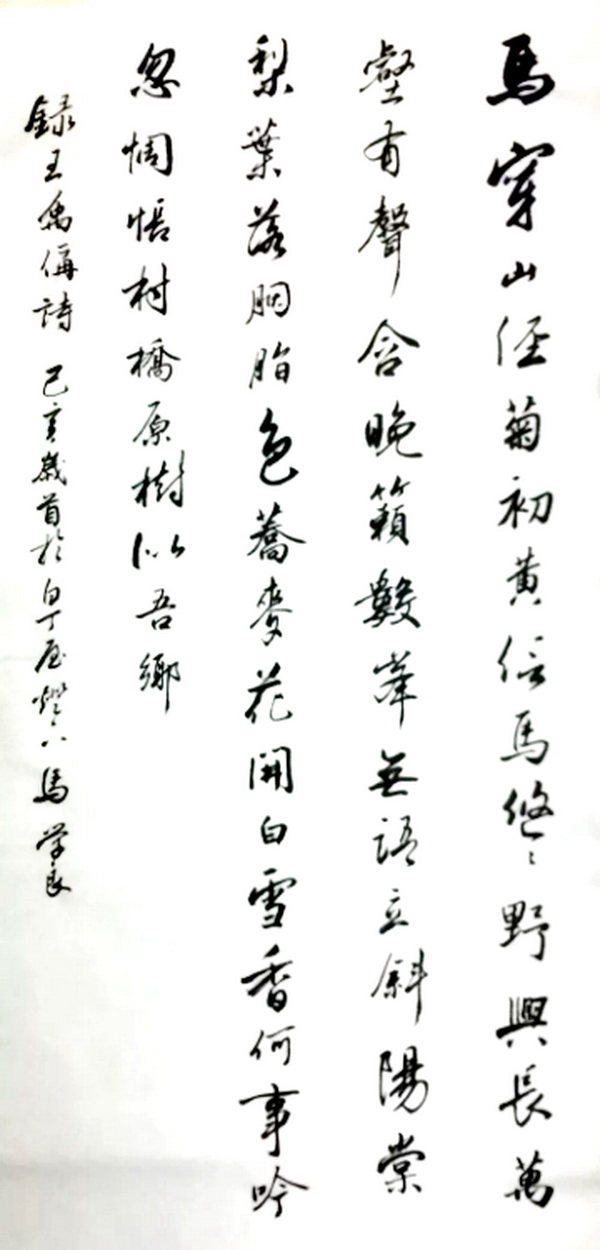 馬穿山徑菊初黃信馬悠〻野興長萬
壑有聲含晚籟數峯無語立斜陽棠
梨葉落胭脂色蕎麥花開白雪香何事吟
忽惆悵村橋原樹似吾鄉
録王禹偁詩己亥歲首於白丁屋燈下馬学良